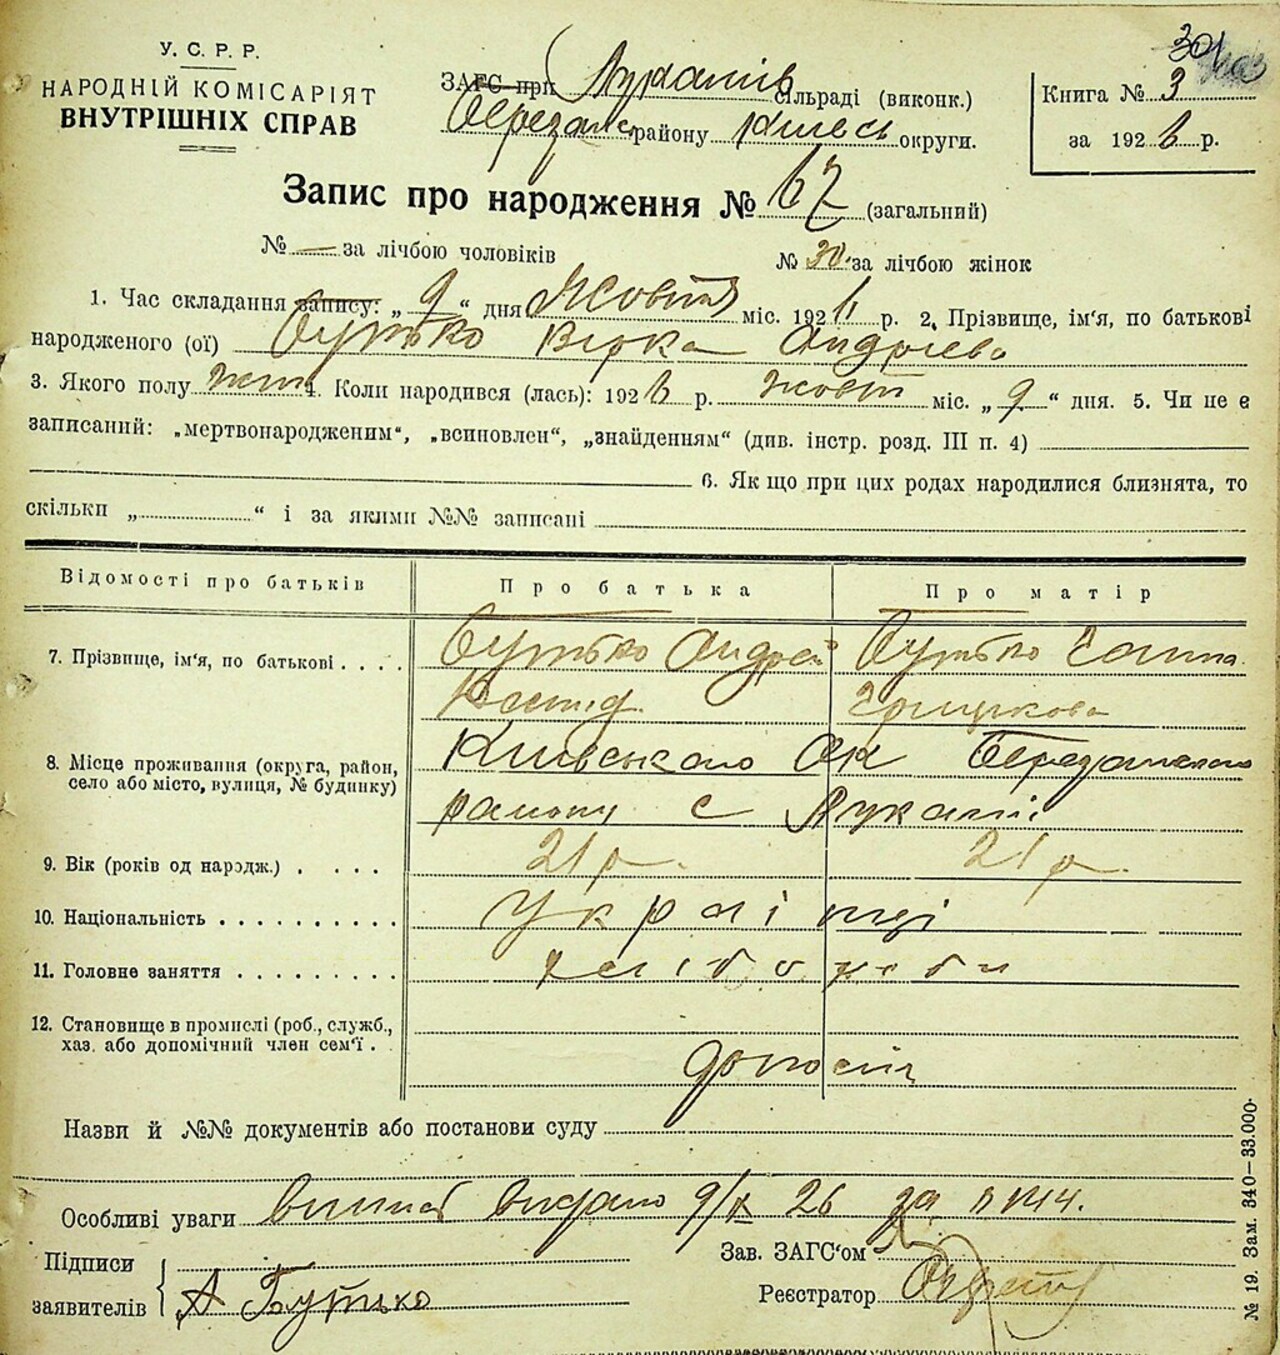 У. С. Р. Р.
НАРОДНІЙ КОМІСАРІЯТ
ВНУТРІШНІХ СПРАВ
301
ЗАГС при Лукашів Сільраді (виконк.)
Березанс району Київсь округи.
Книга № 3
за 1926 р.
Запис про народження № 67 (загальний)
№ — за лічбою чоловіків
№ 30. за лічбою жінок
1. Час складання запису: „ 9 “ дня Жовтня міс. 1926 р. 2. Прізвище, ім'я, по батькові
народженого (ої) Бутько Вірка Андрієва
3. Якого полу жін 4. Коли народився (лась): 1926 р. жовт міс. „ 9 “ дня. 5. Чи не є
записаний: „мертвонародженим“, „всиновлен“, „знайденням“ (див. інстр. розд. III п. 4)
6. Як що при цих родах народилися близнята, то
скільки „ “ і за якими №№ записані
Відомості про батьків
Про батька
Про матір
7. Прізвище, ім'я, по батькові . . . .
Бутько Андрій
Бутько Ганна
8. Місце проживання (округа, район,
село або місто, вулиця, № будинку)
Київського Ок Березанського
району с Лукаші
9. Вік (років од народж.) . . . .
21 р.
21 р.
10. Національність . . . . . . . . . .
Украінці
11. Головне заняття . . . . . . . . .
хлібороби
12. Становище в промислі (роб., служб.,
хаз. або допомічний член сем'ї . .
Назви й №№ документів або постанови суду
Особливі уваги виписъ видано 9/X 26 за n
Підписи
заявителів
А Бутько
Зав. ЗАГС'ом
Реєстратор
№ 19. Зам. 340—33.000.